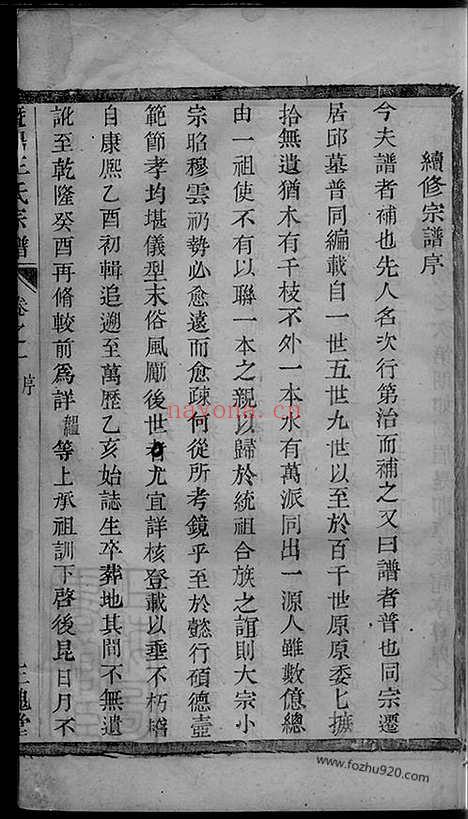 續修宗譜序
今夫譜者補也先人名次行第治而補之又曰譜者普也同宗遷
居邱墓普同編載自一世五世九世以至於百千世原原委七摭
拾無遺猶木有千枝不外一本水有萬派同出一源人雖數億總
由一祖使不有以聯一本之親以歸於統祖合族之誼則大宗小
宗昭穆雲礽勢必愈遠而愈疎何從所考鏡乎至於懿行碩德壼
範節孝均堪儀型末俗風勵後世者尤宜詳核登載以垂不朽
自康熈乙酉初輯追遡至萬歷乙亥始誌生卒葬地其間不無遺
訛至乾隆癸酉再脩較前為詳 等上承祖訓下啓後昆日月不
王氏宗譜 卷之一 序 三槐堂
nayona.cn
www.fozhu920.com